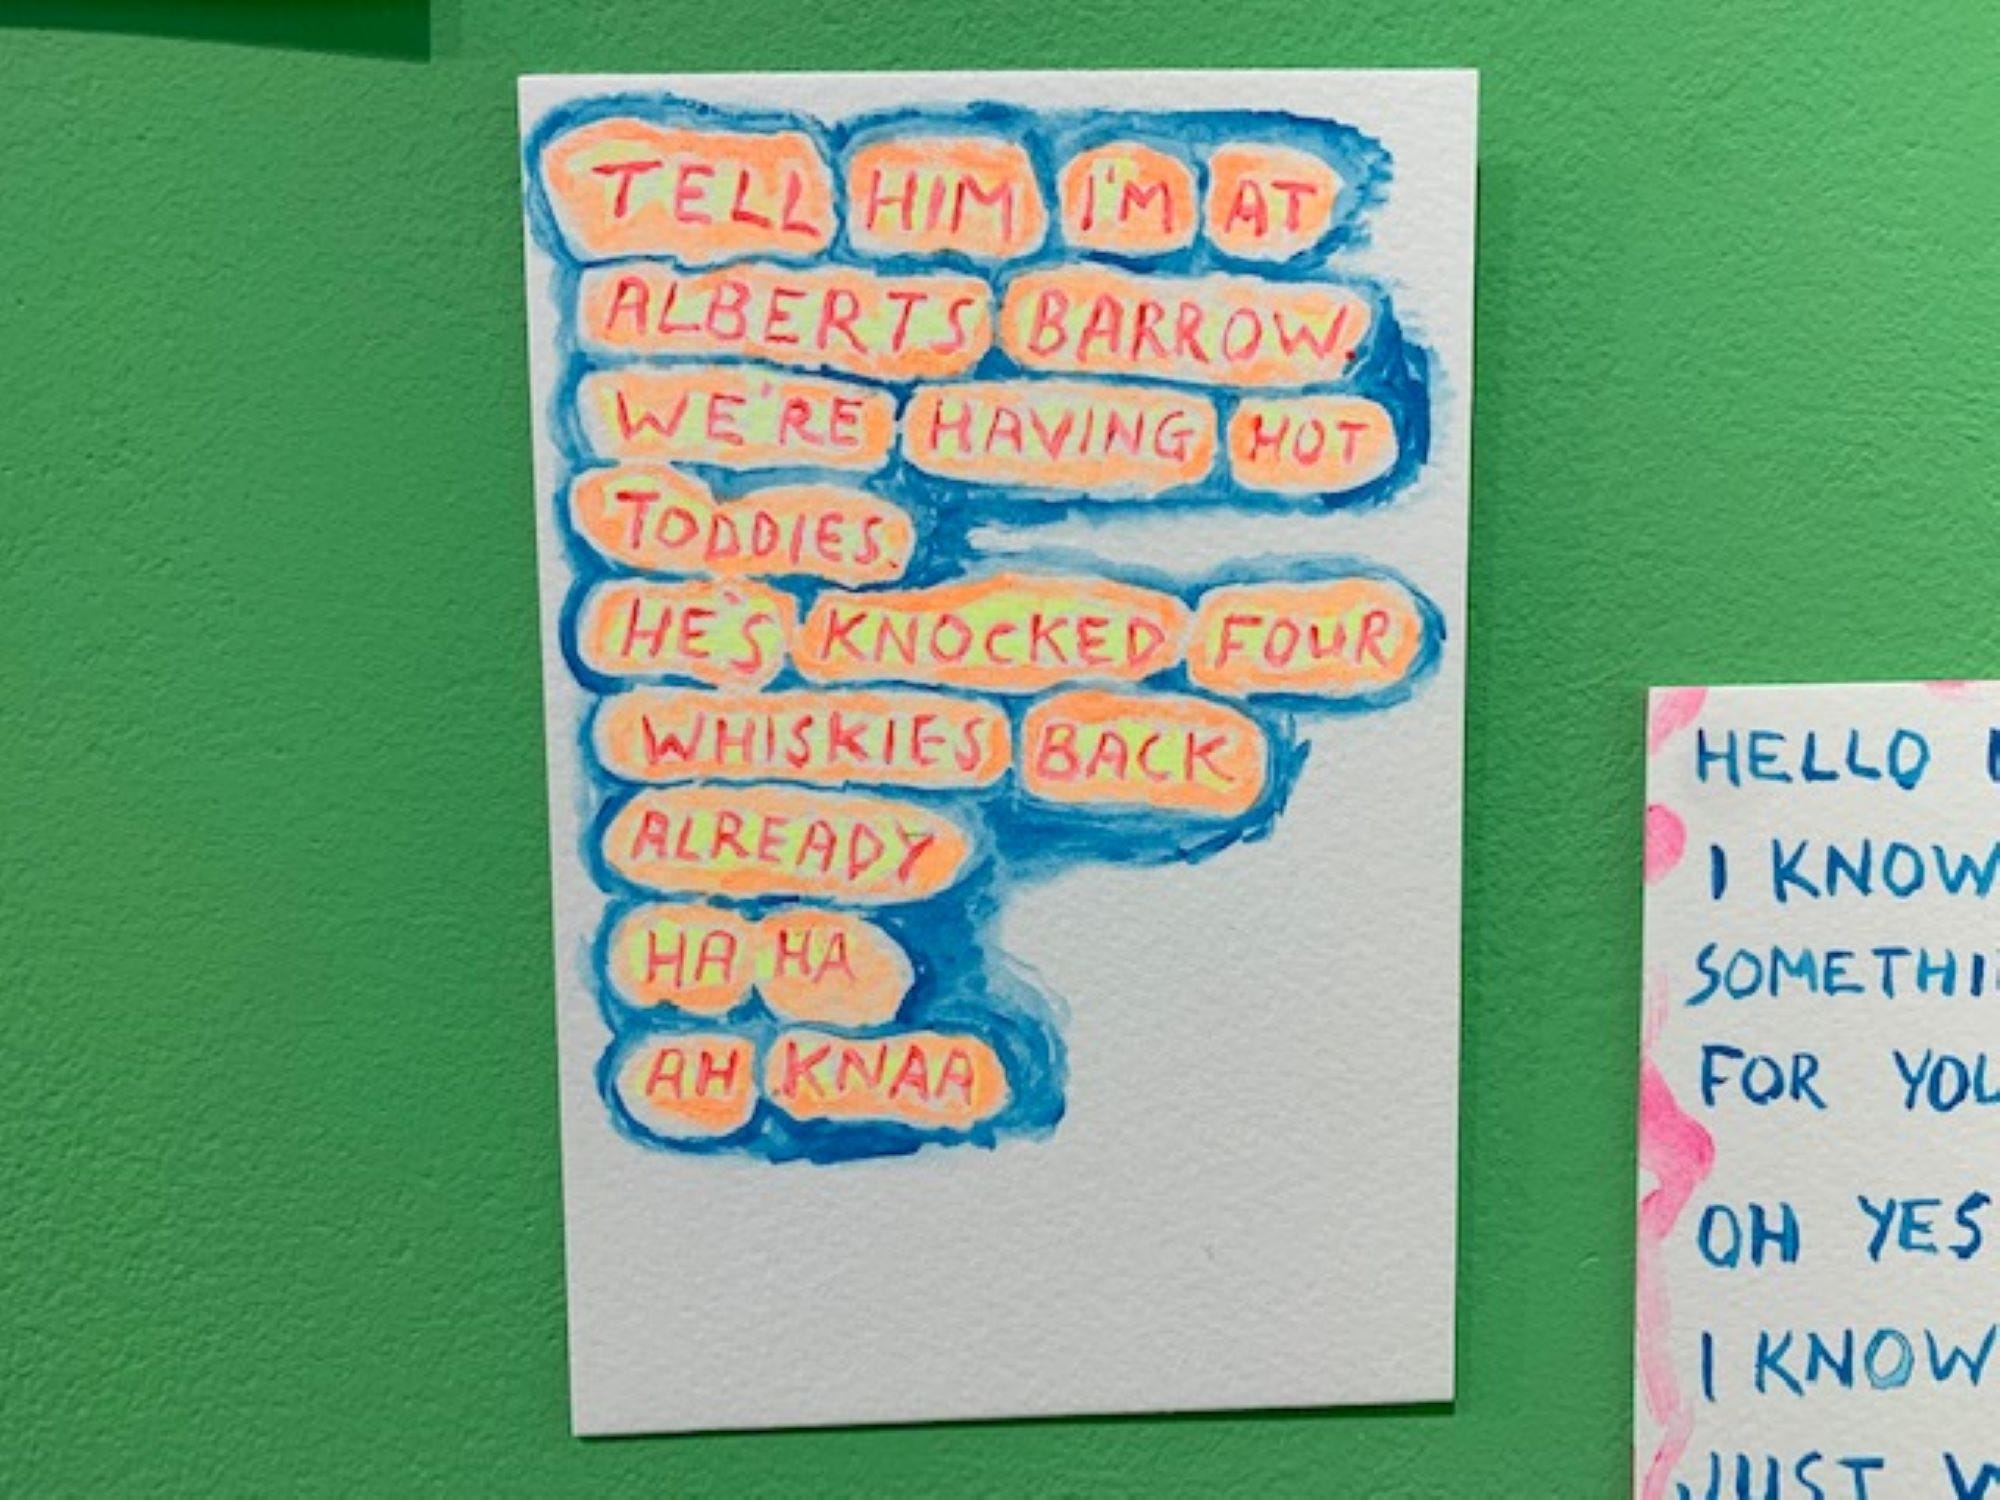 TELL HIM I'M AT
ALBERTS BARROW.
WE'RE HAVING HOT
TODDIES.
HE'S KNOCKED FOUR
WHISKIES BACK
ALREADY
HA HA
AH KNAA
HELLO
I KNOW
SOMETHI
FOR YOU
OH YES
I KNOW
JUST W